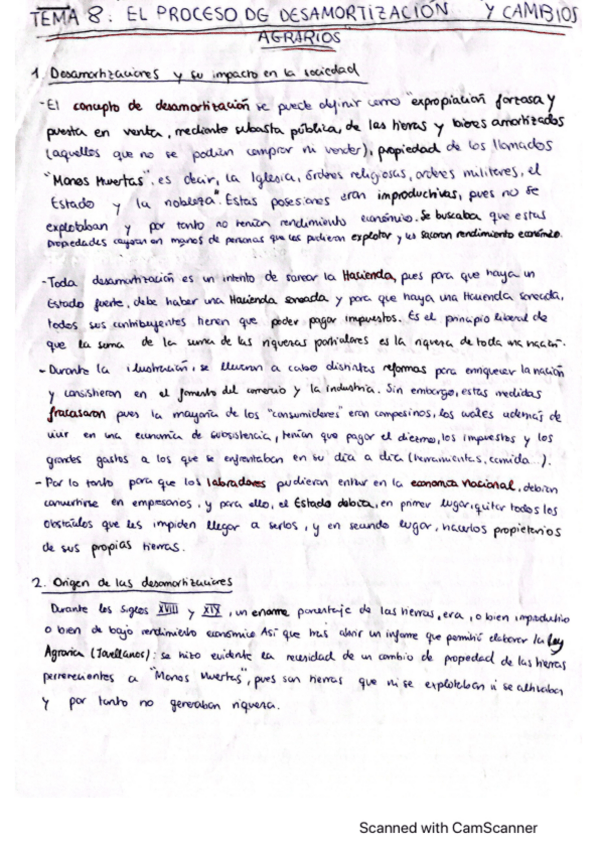 TEMA 8: EL PROCESO DE DESAMORTIZACIÓN Y CAMBIOS
AGRARIOS
1. Desamortizaciones y su impacto en la sociedad
- El concepto de desamortización se puede definir como "expropiación forzosa y
puesta en venta, mediante subasta pública, de las tierras y bienes amortizados
(aquellos que no se podían comprar ni vender), propiedad de los llamados
"Manos Muertas", es decir, la Iglesia, órdenes religiosas, ordenes militares, el
Estado y la nobleza". Estas posesiones eran improductivas, pues no se
explotaban y por tanto no tenían rendimiento económico. Se buscaba que estas
propiedades cayeran en manos de personas que las pudieran explotar y les sacaran rendimiento económico.
- Toda desamortización es un intento de sanear la Hacienda, pues para que haya un
Estado fuerte, debe haber una Hacienda saneada y para que haya una Hacienda saneada,
todos sus contribuyentes tienen que poder pagar impuestos. Es el principio liberal de
que la suma de la suma de las riquezas particulares es la riqueza de toda una nación.
- Durante la ilustración, se llevaron a cabo distintas reformas para enriquecer la nación
y consistieron en el fomento del comercio y la industria. Sin embargo, estas medidas
fracasaron pues la mayoría de los "consumidores" eran campesinos, los cuales además de
vivir en una economía de subsistencia, tenían que pagar el diezmo, los impuestos y los
grandes gastos a los que se enfrentaban en su día a día (herramientas, comida...).
- Por lo tanto para que los labradores pudieran entrar en la economía nacional, debían
convertirse en empresarios, y para ello, el Estado debía, en primer lugar, quitar todos los
obstáculos que les impiden llegar a serlos, y en segundo lugar, hacerlos propietarios
de sus propias tierras.
2. Origen de las desamortizaciones
Durante los siglos XVIII y XIX, un enorme porcentaje de las tierras, era, o bien improductivo
o bien de bajo rendimiento económico. Así que tras abrir un informe que permitió elaborar la Ley
Agraria (Jovellanos): se hizo evidente la necesidad de un cambio de propiedad de las tierras
pertenecientes a "Manos Muertas", pues son tierras que ni se explotaban ni se cultivaban
y por tanto no generaban riqueza.
Scanned with CamScanner